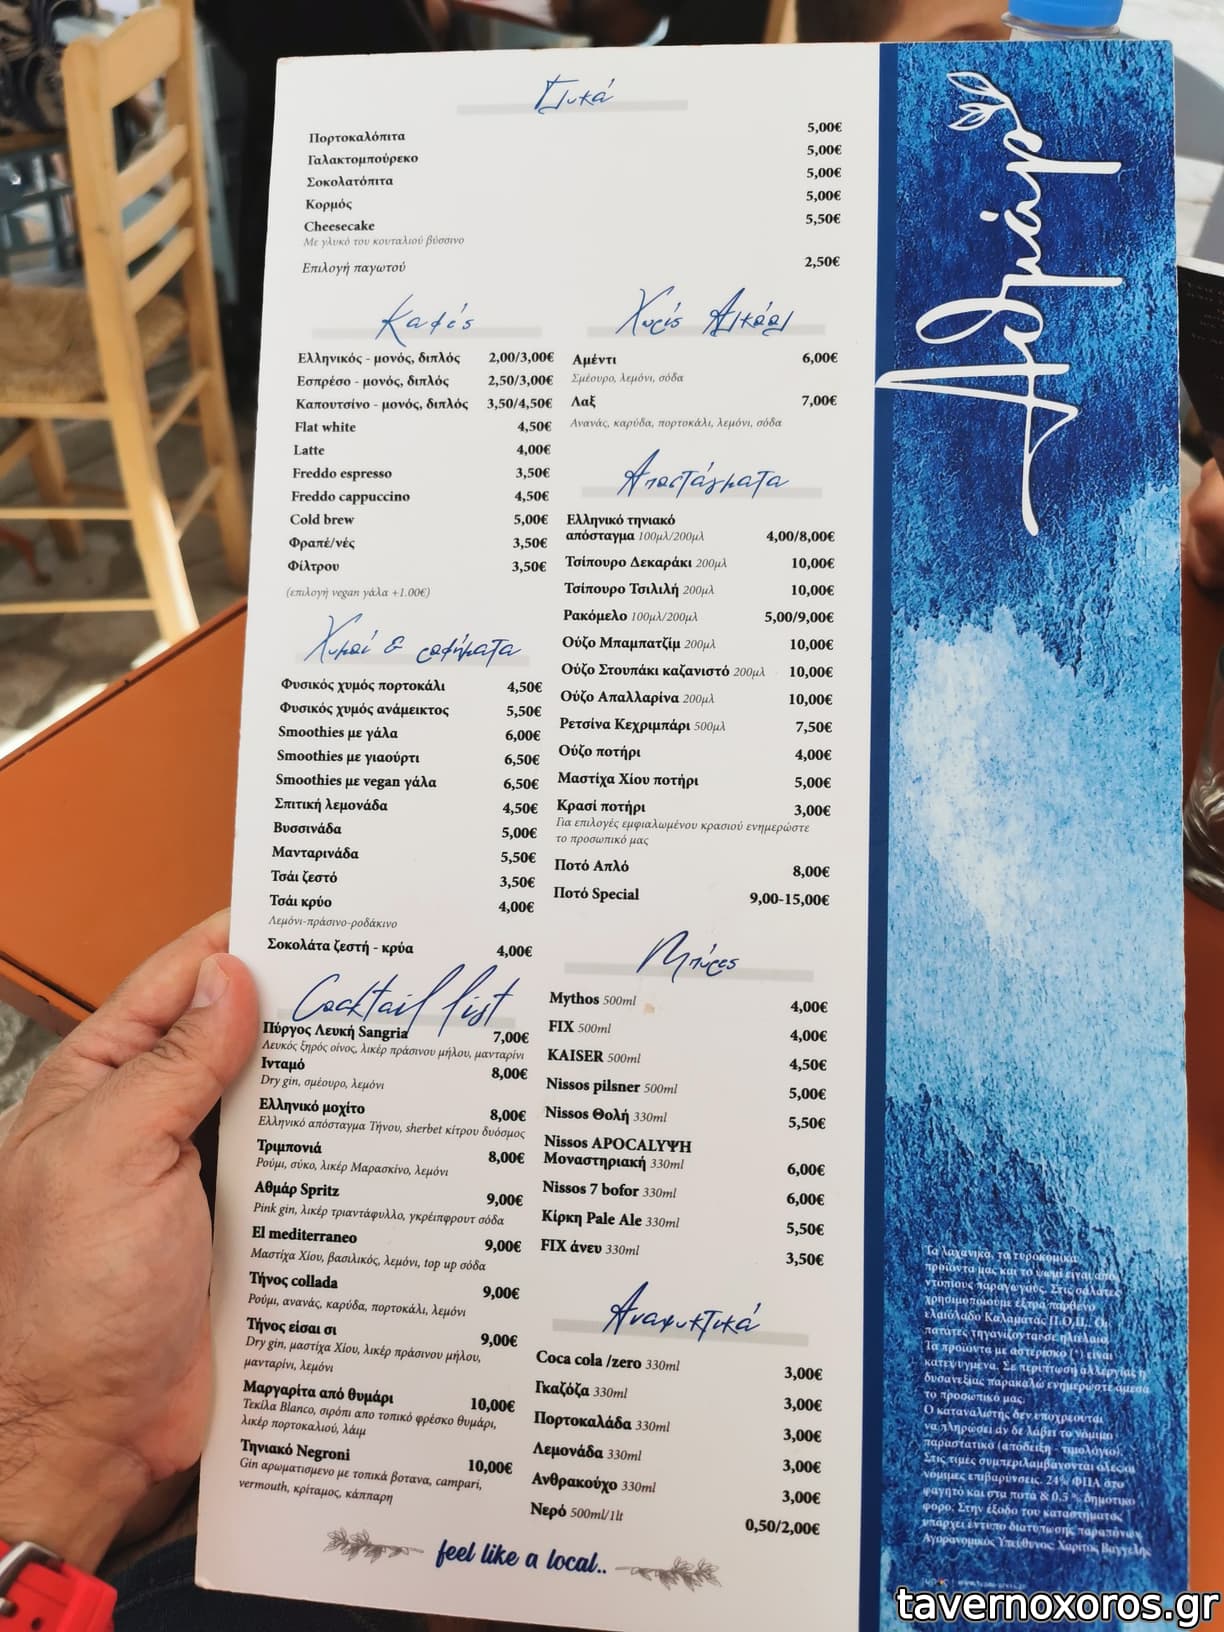 Γλυκά
Πορτοκαλόπιτα 5,00€
Γαλακτομπούρεκο 5,00€
Σοκολατόπιτα 5,00€
Κορμός 5,00€
Cheesecake 5,50€
Με γλυκό του κουταλιού βύσσινο
Επιλογή παγωτού 2,50€
Καφές
Ελληνικός - μονός, διπλός 2,00/3,00€
Εσπρέσο - μονός, διπλός 2,50/3,00€
Καπουτσίνο - μονός, διπλός 3,50/4,50€
Flat white 4,50€
Latte 4,00€
Freddo espresso 3,50€
Freddo cappuccino 4,50€
Cold brew 5,00€
Φραπέ/νές 3,50€
Φίλτρου 3,50€
(επιλογή vegan γάλα +1.00€)
Χυμοί & ροφήματα
Φυσικός χυμός πορτοκάλι 4,50€
Φυσικός χυμός ανάμεικτος 5,50€
Smoothies με γάλα 6,00€
Smoothies με γιαούρτι 6,50€
Smoothies με vegan γάλα 6,50€
Σπιτική λεμονάδα 4,50€
Βυσσινάδα 5,00€
Μανταρινάδα 5,50€
Τσάι ζεστό 3,50€
Τσάι κρύο 4,00€
Λεμόνι-πράσινο-ροδάκινο
Σοκολάτα ζεστή - κρύα 4,00€
Cocktail list
Πύργος Λευκή Sangria 7,00€
Λευκός ξηρός οίνος, λικέρ πράσινου μήλου, μανταρίνι
Ινταμό 8,00€
Dry gin, σμέουρο, λεμόνι
Ελληνικό μοχίτο 8,00€
Ελληνικό απόσταγμα Τήνου, sherbet κίτρου δυόσμος
Τριμπονιά 8,00€
Ρούμι, σύκο, λικέρ Μαρασκίνο, λεμόνι
Αθμάρ Spritz 9,00€
Pink gin, λικέρ τριαντάφυλλο, γκρέιπφρουτ σόδα
El mediterraneo 9,00€
Μαστίχα Χίου, βασιλικός, λεμόνι, top up σόδα
Τήνος collada 9,00€
Ρούμι, ανανάς, καρύδα, πορτοκάλι, λεμόνι
Τήνος είσαι σι 9,00€
Dry gin, μαστίχα Χίου, λικέρ πράσινου μήλου,
μανταρίνι, λεμόνι
Μαργαρίτα από θυμάρι 10,00€
Τεκίλα Blanco, σιρόπι απο τοπικό φρέσκο θυμάρι,
λικέρ πορτοκαλιού, λάιμ
Τηνιακό Negroni 10,00€
Gin αρωματισμενο με τοπικά βοτανα, campari,
vermouth, κρίταμος, κάππαρη
Χωρίς Αλκοόλ
Αμέντι 6,00€
Σμέουρο, λεμόνι, σόδα
Λαξ 7,00€
Ανανάς, καρύδα, πορτοκάλι, λεμόνι, σόδα
Αποστάγματα
Ελληνικό τηνιακό
απόσταγμα 100μλ/200μλ 4,00/8,00€
Τσίπουρο Δεκαράκι 200μλ 10,00€
Τσίπουρο Τσιλιλή 200μλ 10,00€
Ρακόμελο 100μλ/200μλ 5,00/9,00€
Ούζο Μπαμπατζίμ 200μλ 10,00€
Ούζο Στουπάκι καζανιστό 200μλ 10,00€
Ούζο Απαλλαρίνα 200μλ 10,00€
Ρετσίνα Κεχριμπάρι 500μλ 7,50€
Ούζο ποτήρι 4,00€
Μαστίχα Χίου ποτήρι 5,00€
Κρασί ποτήρι 3,00€
Για επιλογές εμφιαλωμένου κρασιού ενημερώστε
το προσωπικό μας
Ποτό Απλό 8,00€
Ποτό Special 9,00-15,00€
Μπύρες
Mythos 500ml 4,00€
FIX 500ml 4,00€
KAISER 500ml 4,50€
Nissos pilsner 500ml 5,00€
Nissos Θολή 330ml 5,50€
Nissos APOCALYΨΗ
Μοναστηριακή 330ml 6,00€
Nissos 7 bofor 330ml 6,00€
Κίρκη Pale Ale 330ml 5,50€
FIX άνευ 330ml 3,50€
Αναψυκτικά
Coca cola /zero 330ml 3,00€
Γκαζόζα 330ml 3,00€
Πορτοκαλάδα 330ml 3,00€
Λεμονάδα 330ml 3,00€
Ανθρακούχο 330ml 3,00€
Νερό 500ml/1lt 0,50/2,00€
feel like a local..
Αθμάρ
Τα λαχανικά, τα τυροκομικά
προϊόντα μας και το ψωμί είναι από
ντόπιους παραγωγούς. Στις σαλάτες
χρησιμοποιούμε έξτρα παρθένο
ελαιόλαδο Καλαμάτας Π.Ο.Π.. Οι
πατάτες τηγανίζονται σε ηλιέλαιο.
Τα προϊόντα με αστερίσκο (*) είναι
κατεψυγμένα. Σε περίπτωση αλλεργίας ή
δυσανεξίας παρακαλώ ενημερώστε άμεσα
το προσωπικό μας.
Ο καταναλωτής δεν υποχρεούται
να πληρώσει αν δε λάβει το νόμιμο
παραστατικό (απόδειξη - τιμολόγιο).
Στις τιμές συμπεριλαμβάνονται όλες οι
νόμιμες επιβαρύνσεις. 24% ΦΠΑ στο
φαγητό και στα ποτά & 0.5 % δημοτικό
φόρο. Στην έξοδο του καταστήματος
υπάρχει έντυπο διατύπωσης παραπόνων.
Αγορανομικός Υπεύθυνος: Χαρίτος Βαγγέλης
tavernoxoros.gr